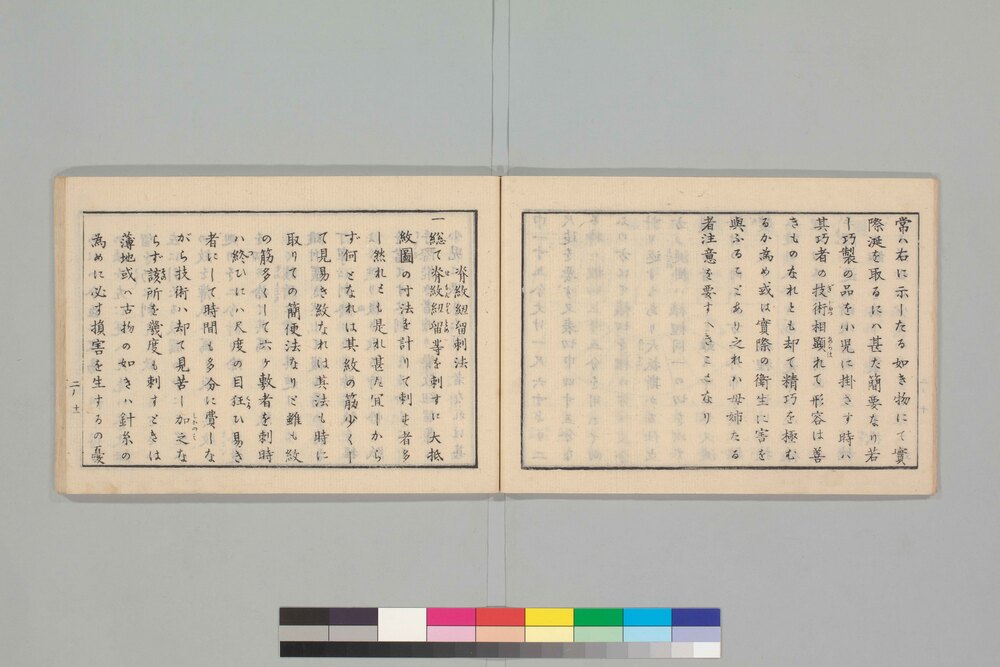 常ハ右に示したる如き物にて實
際涎を取るにハ甚た簡要なり若
し巧製の品を小児に掛さす時ハ
其巧者の技術相顕れて形容は善
きものなれとも却て精巧を極む
るか為め或は實際の衛生に害を
與ふることあり之れハ母姉たる
者注意を要すへきことなり
脊紋紐留刺法
一 総て脊紋紐留等を刺すに大抵
紋圖の寸法を計りて刺す者多
し然れとも是れ甚た宜しから
ず何となれは其紋の筋少くし
て見易き紋なれは其法も時に
取りての簡便法なりと雖も紋
の筋多くして六ヶ敷者を刺時
ハ終ひにハ尺度の目狂ひ易き
者にして時間も多分に費しな
がら技術ハ却て見苦し加之な
らず該所を幾度も刺すときは
薄地或ハ古物の如きハ針糸の
為めに必す損害を生するの憂
二ノ十